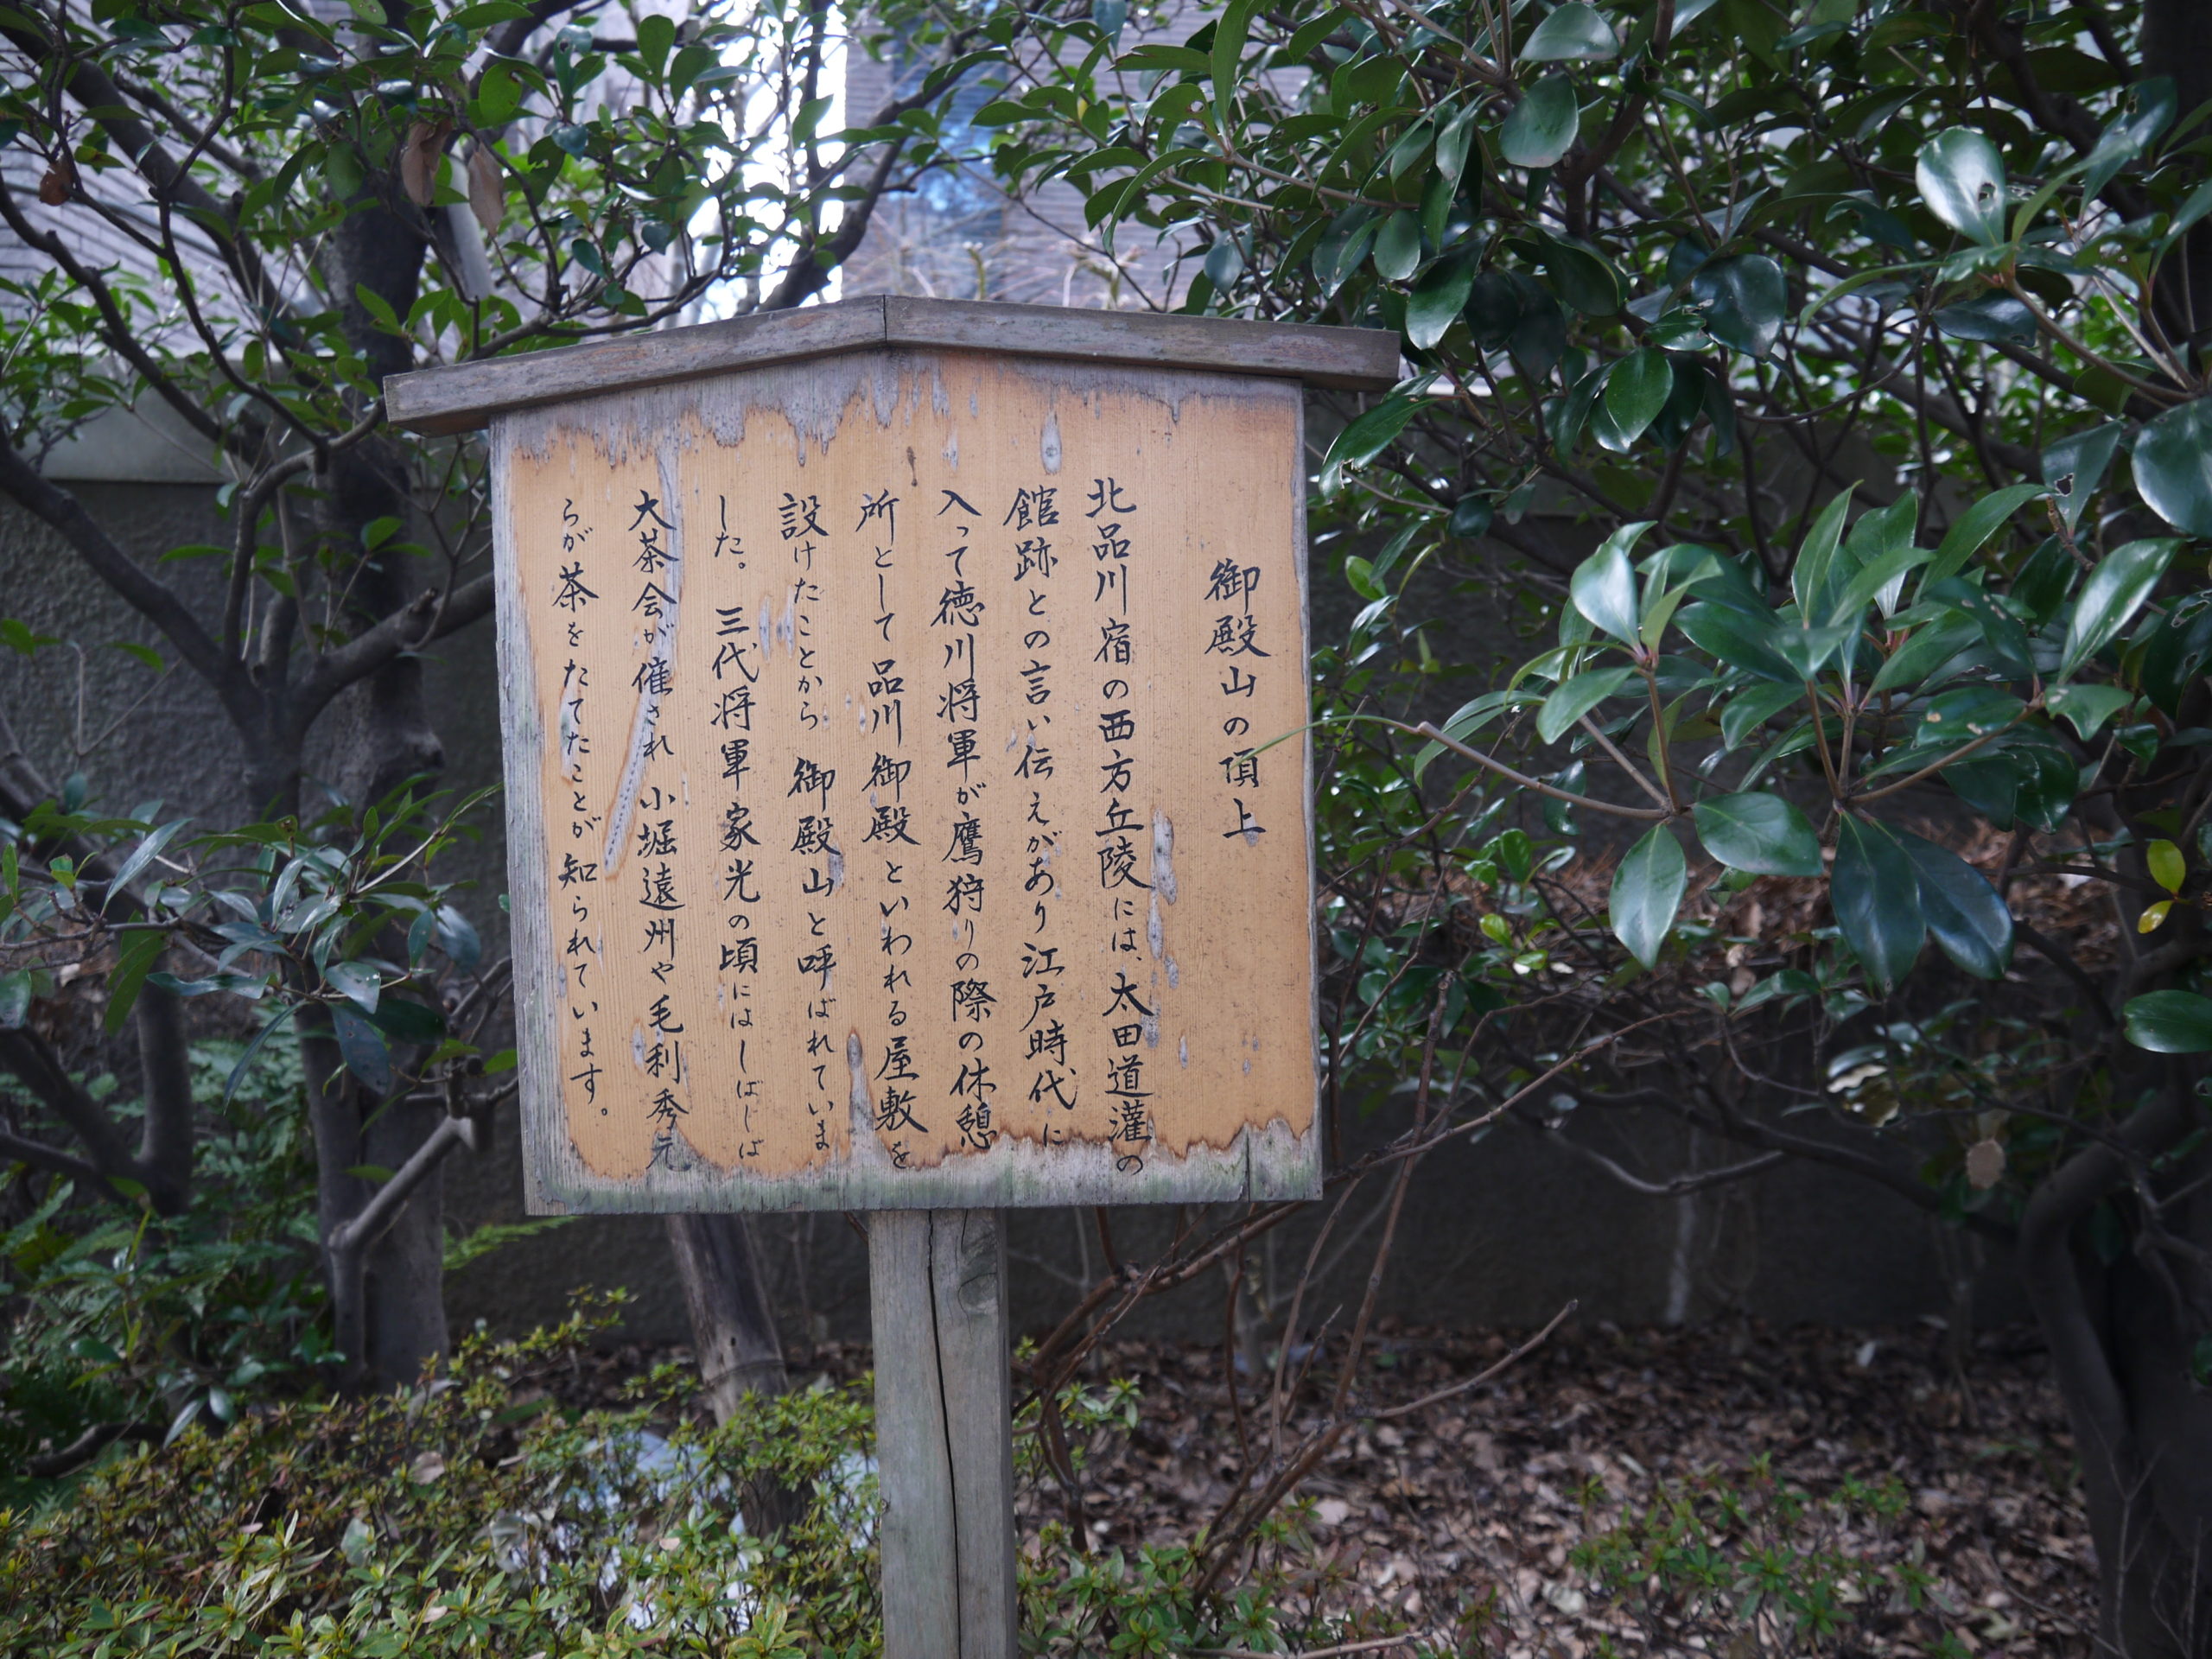 御殿山の頂上
北品川宿の西方丘陵には、太田道灌の
館跡との言い伝えがあり江戸時代に
入って徳川将軍が鷹狩りの際の休憩
所として品川御殿といわれる屋敷を
設けたことから御殿山と呼ばれていま
した。三代将軍家光の頃にはしばしば
大茶会が催され小堀遠州や毛利秀元
らが茶をたてたことが知られています。